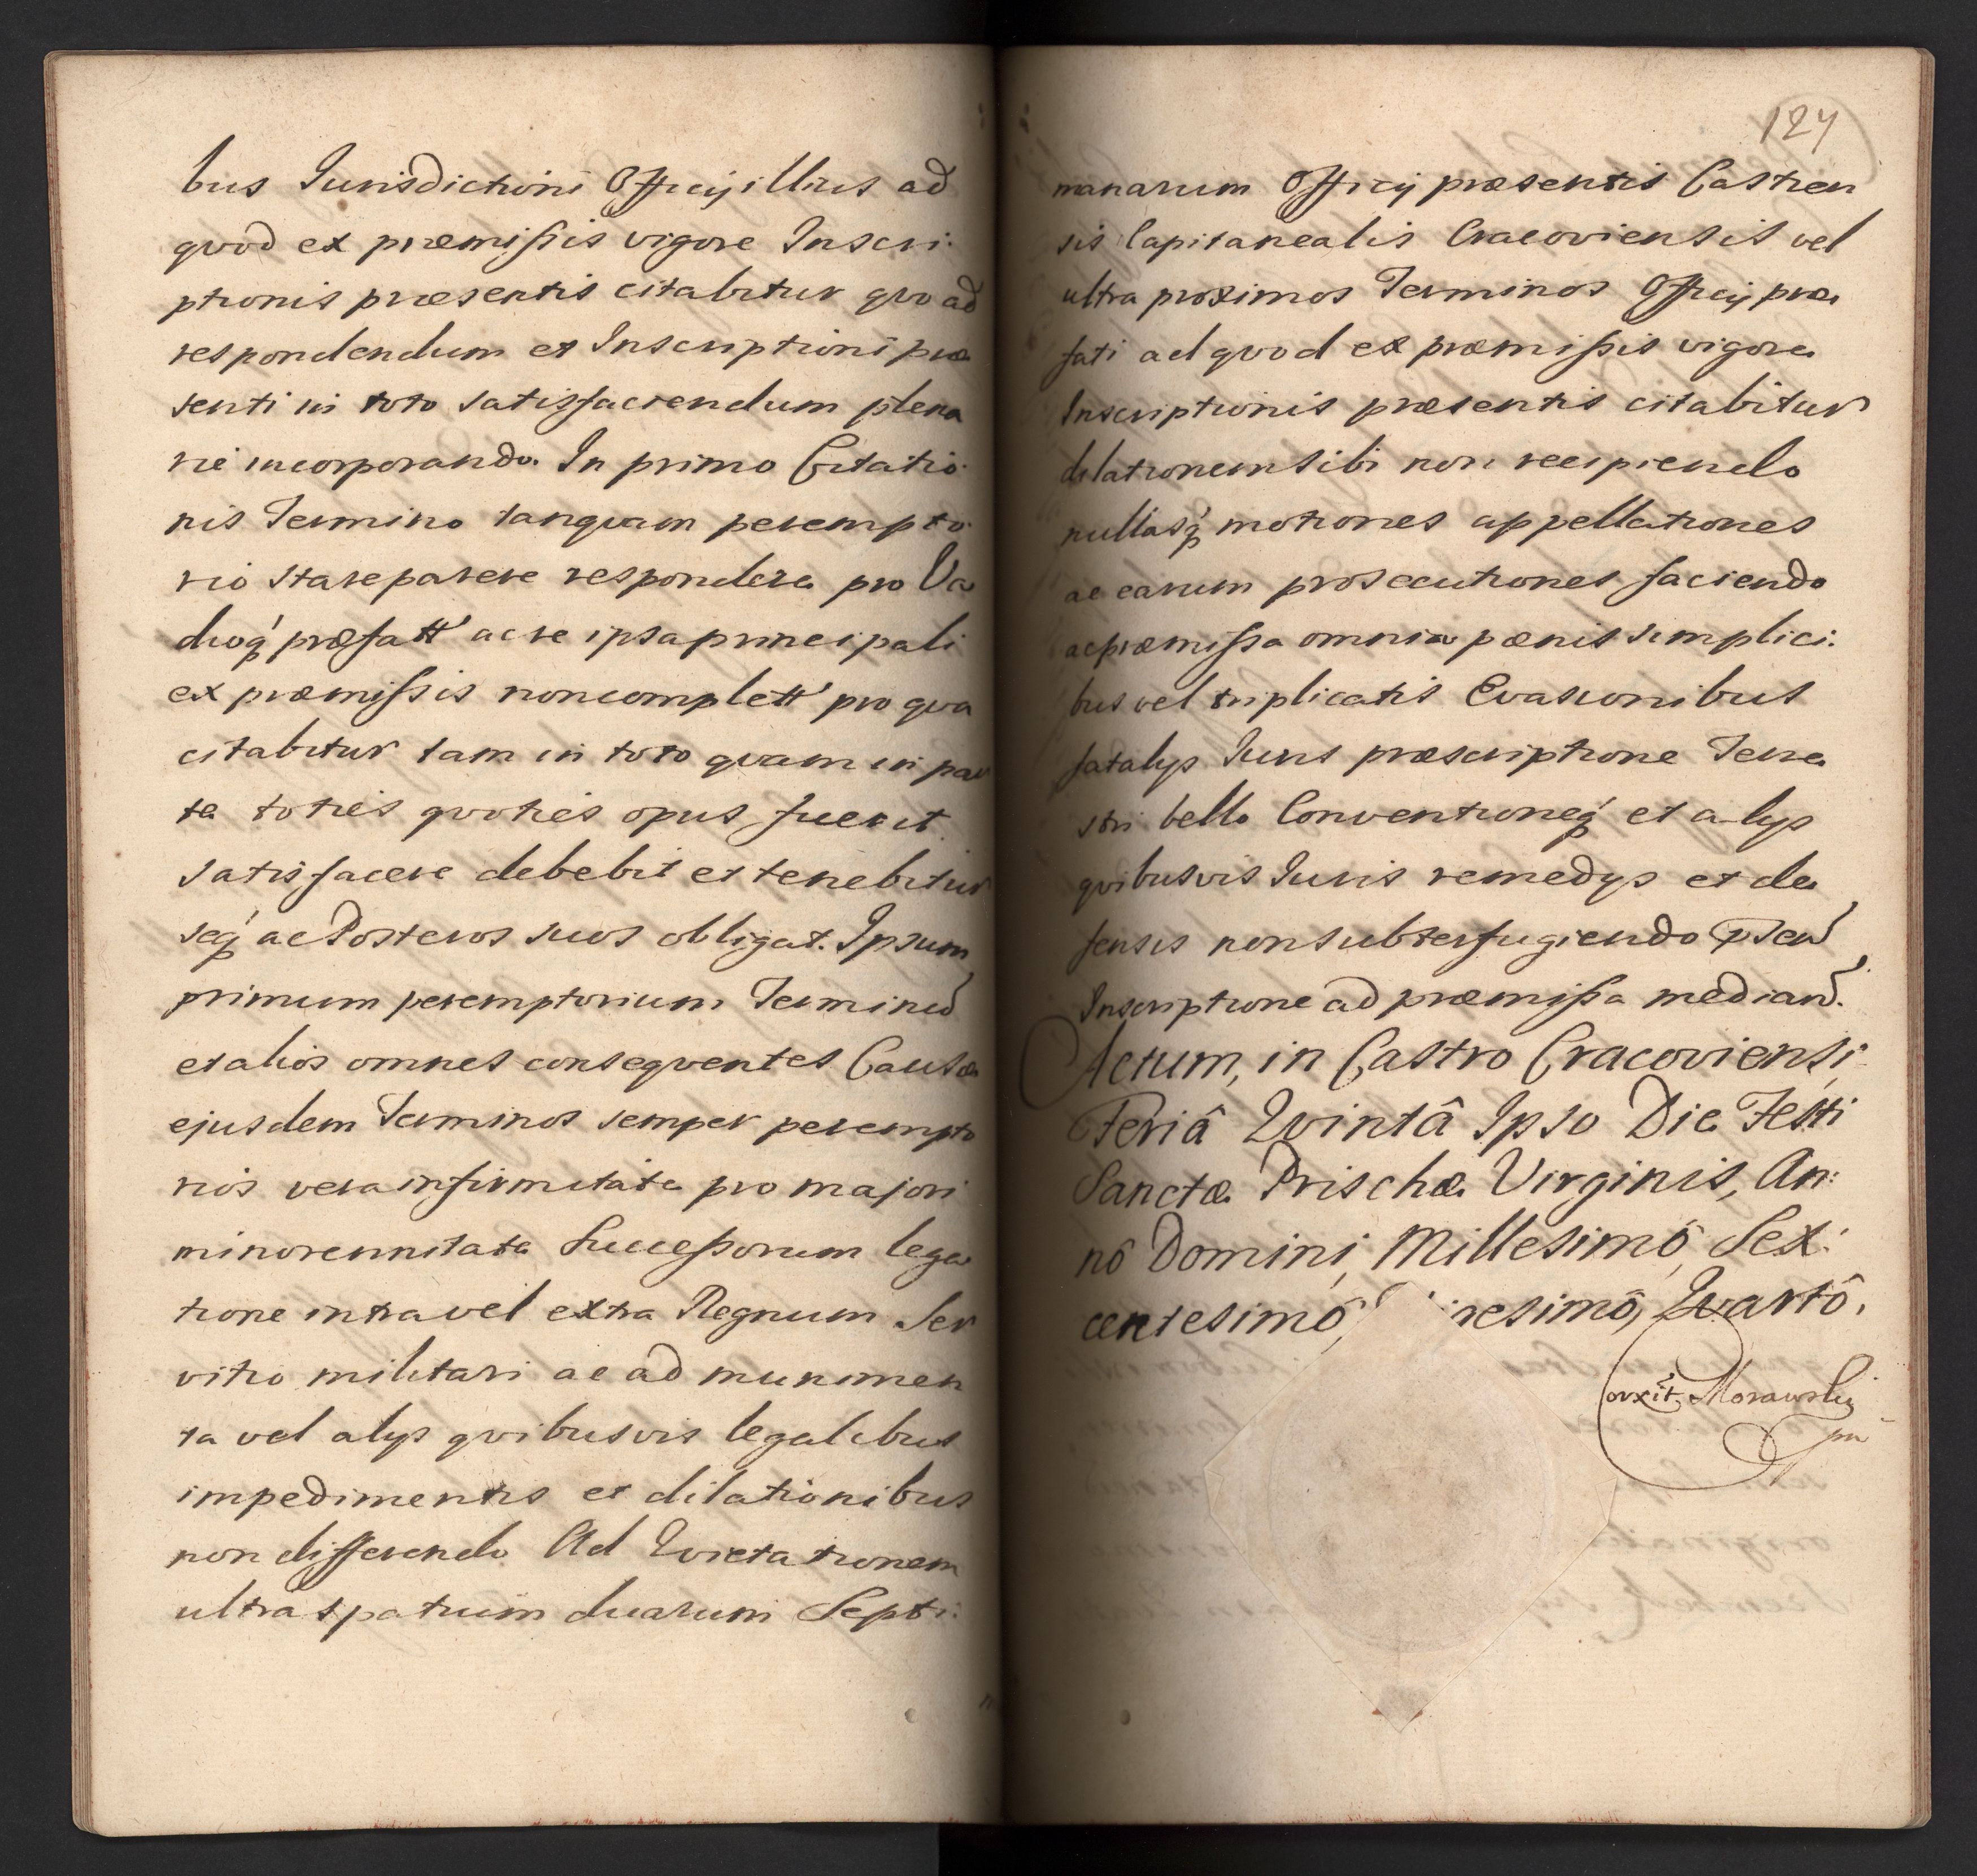 bus Jurisdictioni Officij illius ad
qvod ex præmissis vigore Inscri:
ptionis præsentis citabitur qvo ad
respondendum et Inscriptioni præ
senti in toto satisfaciendum plena
riè incorporando. In primo Citatio:
nis Termino tanqvam perempto:
rio stare parere respondere pro Va
dioq́ præfatt' ac re ipsa principali
ex præmissis non complett' pro qva
citabitur tam in toto qvam in par
te toties qvoties opus fuerit
satisfacere debebit et tenebitur
seq́ ac Posteros suos obligat. Ipsum
primum peremptorium Terminũ
et alios omnes conseqventes Causæ
ejusdem Terminos semper perempto
rios vera infirmitate pro majori
minorennitate Successorum lega
tione intra vel extra Regnum Ser
vitio militari ac ad munimen
ta vel alys qvibusvis legalibus
impedimentis et dilationibus
non differendo Ad Qvietationem
ultra spatium duarum Septi:
127
manarum Officij præsentis Castren
sis Capitanealis Cracoviensis vel
ultra proximos Terminos Officij præ
fati ad qvod ex præmissis vigore
Inscriptionis præsentis citabitur
dilationem sibi non recipiendo
nullasq́ motiones appellationes
ac earum prosecutiones faciendo
ac præmissa omnia pænis simplici:
bus vel triplicatis Evasionibus
fatalys Juris præscriptione Terre
stri bello Conventioneq́ et alys
qvibusvis Juris remedys et de
fensis non subterfugiendo
Inscriptione ad præmissa median̄.
Actum, in Castro Cracoviensi,
Feriâ Qvintâ Ipso Die Festi
Sanctæ Prischæ Virginis, An:
nô Domini, Millesimô, Sex:
centesimô, resimô, Qvartô.
Corxit, Morawsky